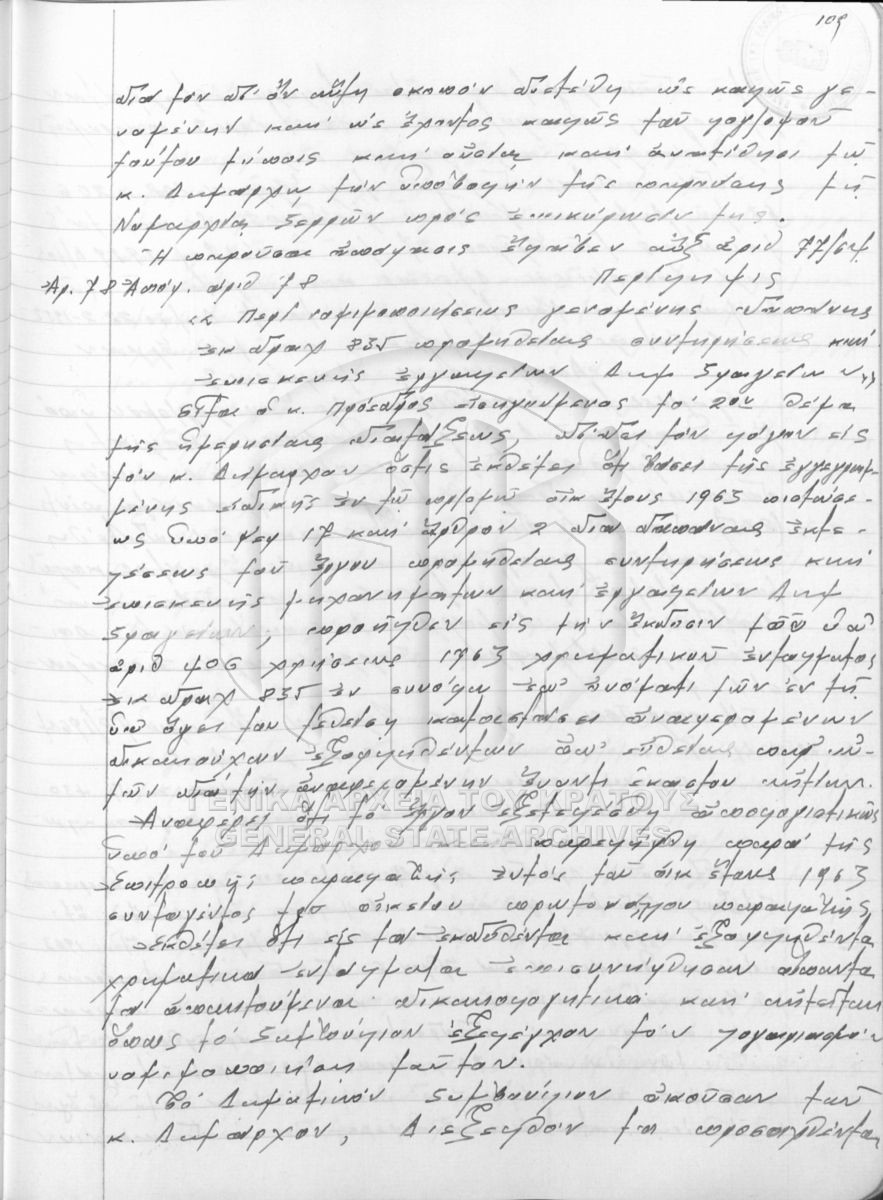 109
διὰ τὸν δι' ὃν αὕτη σκοπὸν διετέθη ὡς καλῶς γε-
ναμένην καὶ ὡς ἔχοντος καλῶς τοῦ λογ/σμοῦ
τούτου τύποις καὶ οὐσίᾳ καὶ ἀνατίθησι τῷ
κ. Δημάρχῳ τὴν ὑποβολὴν τῆς παρούσης τῇ
Νομαρχίᾳ Σερρῶν πρὸς ἐπικύρωσίν της.
Ἡ παροῦσα ἀπόφασις ἔλαβεν αὔξ ἀριθ 77/64
Ἀρ. 78 Ἀπόφ. ἀριθ 78 Περίληψις
« Περὶ νομιμοποιήσεως γενομένης δαπάνης
ἐκ δραχ 835 προμηθείας συντηρήσεως καὶ
ἐπισκευῆς ἐργαλείων Δημ Σφαγείων »
Εἶτα ὁ κ. Πρόεδρος εἰσηγούμενος τὸ 2ον θέμα
τῆς ἡμερησίας διατάξεως, δίδει τὸν λόγον εἰς
τὸν κ. Δήμαρχον ὅστις ἐκθέτει ὅτι βάσει τῆς ἐγγεγραμ-
μένης εἰδικῆς ἐν τῷ πρ/σμῷ οἰκ ἔτους 1963 πιστώσε-
ως ὑπὸ Κεφ 17 καὶ ἄρθρον 2 διὰ δαπάνας ἐκτε-
λέσεως τοῦ ἔργου προμηθείας συντηρήσεως καὶ
ἐπισκευῆς μηχανημάτων καὶ ἐργαλείων Δημ
Σφαγείων, προῆλθεν εἰς τὴν ἔκδοσιν τοῦ ὑπ'
ἀριθ 406 χρήσεως 1963 χρηματικοῦ ἐντάλματος
ἐκ δραχ 835 ἐν συνόλῳ ἐπ' ὀνόματι τῶν ἐν τῇ
ὑπ' ὄψει τεθείσῃ καταστάσει ἀναφερομένων
δικαιούχων ἐξοφληθέντων ἀπ' εὐθείας παρ' αὐ-
τῶν διὰ τὴν ἀναφερομένην ἔναντι ἑκάστου αἰτίαν.
Ἀναφέρει ὅτι τὸ ἔργον ἐξετελέσθη ἀπολογιστικῶς
ὑπὸ τοῦ Δήμαρχο παρελήφθη παρὰ τῆς
Ἐπιτροπῆς παραλαβῆς ἐντὸς τοῦ οἰκ ἔτους 1963
συνταγέντος τοῦ οἰκείου πρωτοκόλλου παραλαβῆς
Ἐκθέτει ὅτι εἰς τὰ ἐκδοθέντα καὶ ἐξοφληθέντα
χρηματικὰ ἐντάλματα ἐπισυνήφθησαν ἅπαντα
τὰ ἀπαιτούμενα δικαιολογητικὰ καὶ αἰτεῖται
ὅπως τὸ Συμβούλιον ἐξελέγχον τὸν λογαριασμὸν
νομιμοποιήσῃ τοῦτον.
Τὸ Δημοτικὸν Συμβούλιον ἀκοῦσαν τοῦ
κ. Δημάρχου, Διεξελθὸν τὰ προσαχθέντα
ΓΕΝΙΚΑ ΑΡΧΕΙΑ ΤΟΥ ΚΡΑΤΟΥΣ
GENERAL STATE ARCHIVES